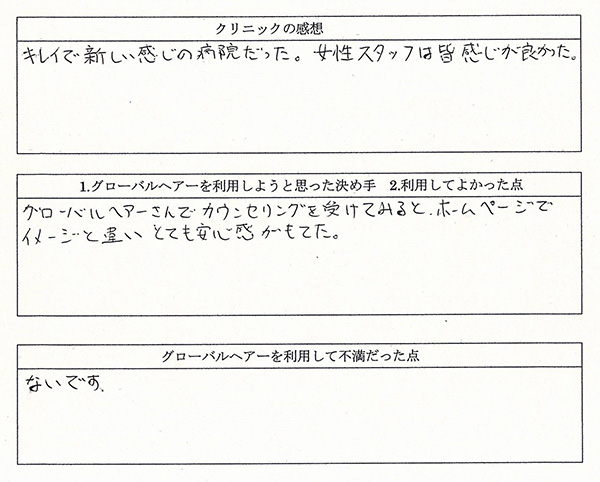 クリニックの感想
キレイで新しい感じの病院だった。女性スタッフは皆感じが良かった。
1.グローバルヘアーを利用しようと思った決め手 2.利用してよかった点
グローバルヘアーさんでカウンセリングを受けてみると、ホームページで
イメージと違いとても安心感がもてた。
グローバルヘアーを利用して不満だった点
ないです、